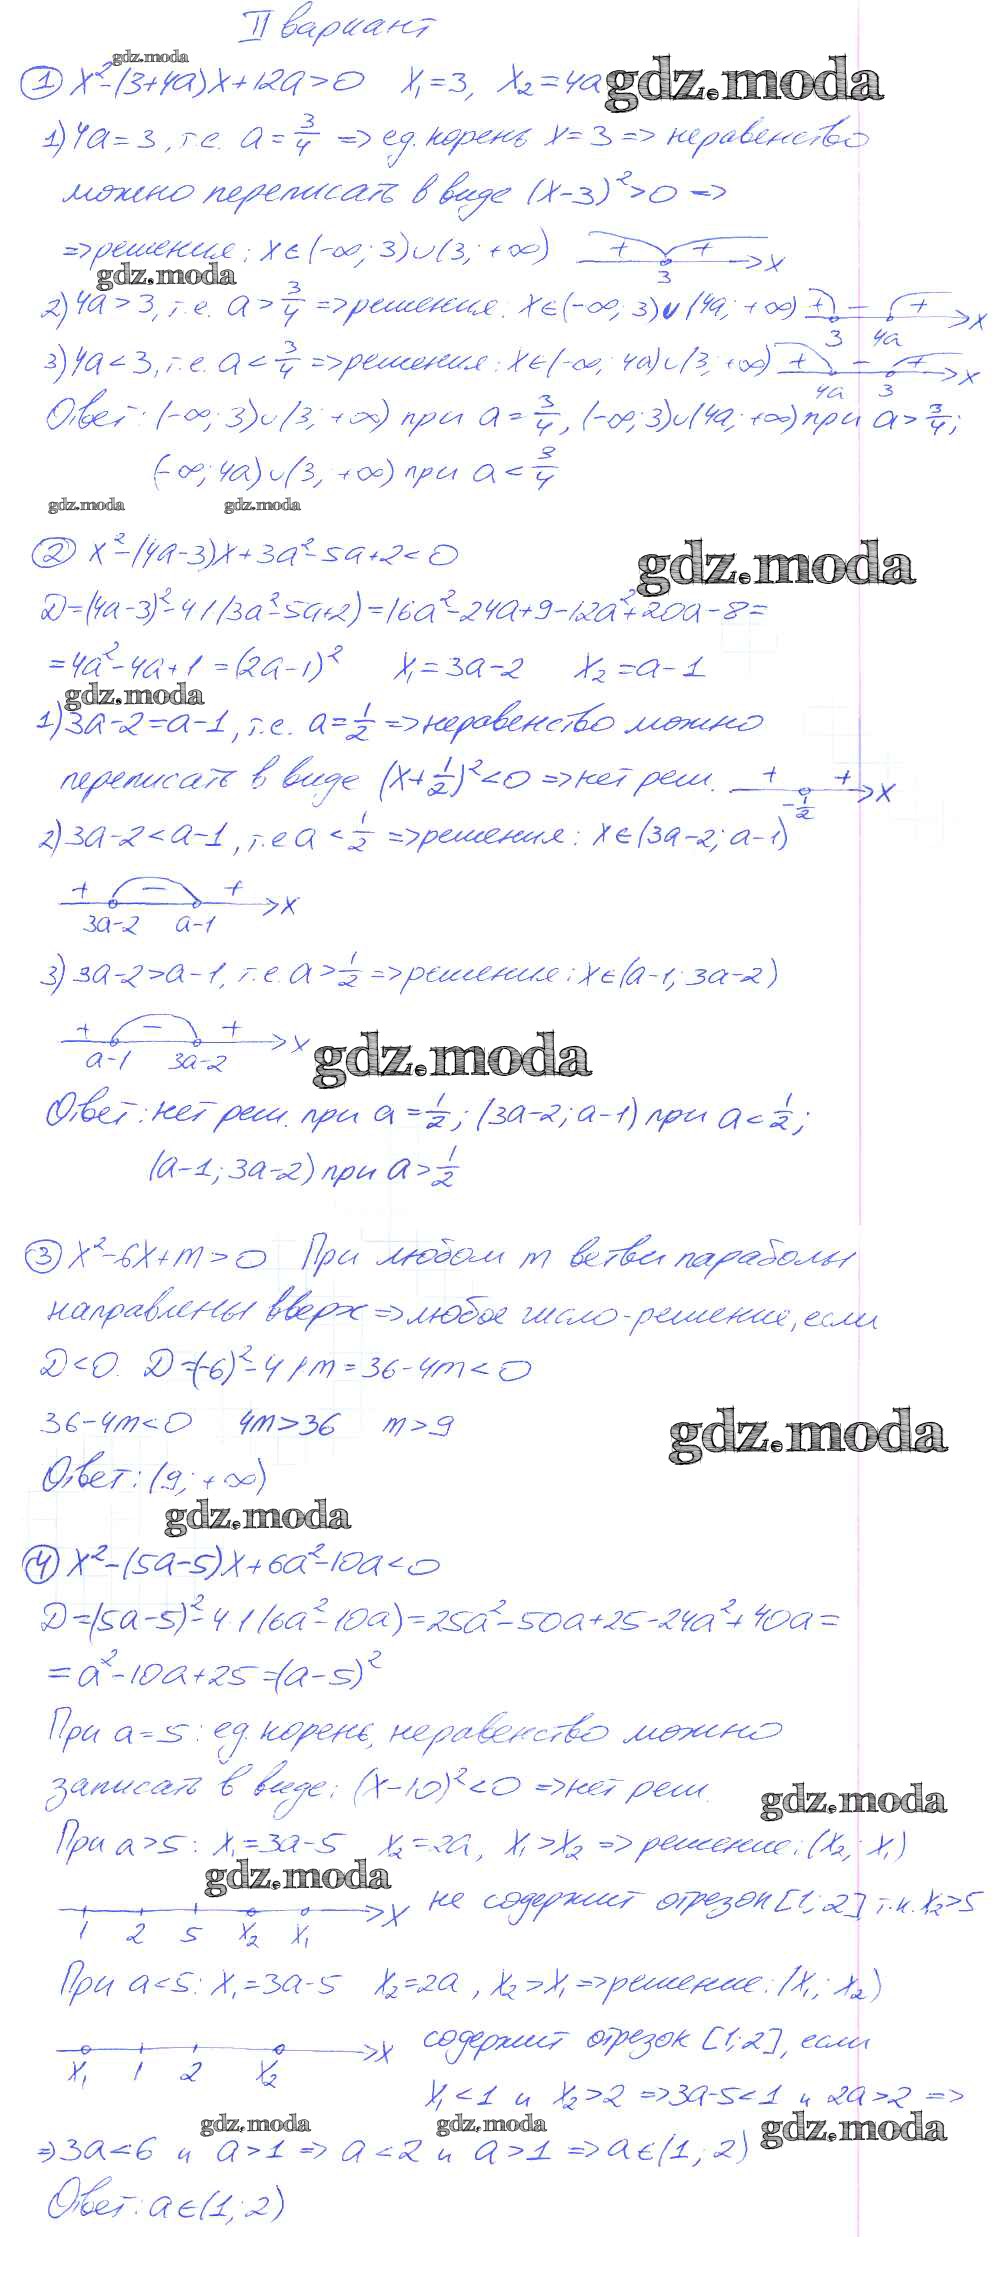 II вариант
gdz.moda
① x²-(3+4a)x+12a>0 x₁=3, x₂=4a gdz.moda
1) 4a=3, т.е. a=3/4 => ед. корень x=3 => неравенство
можно переписать в виде (x-3)²>0 =>
=> решения: x∈(-∞; 3)∪(3; +∞) + + 3 x
gdz.moda
2) 4a>3, т.е. a>3/4 => решения: x∈(-∞; 3)∪(4a; +∞) + - + 3 4a x
3) 4a<3, т.е. a<3/4 => решения: x∈(-∞; 4a)∪(3; +∞) + - + 4a 3 x
Ответ: (-∞; 3)∪(3; +∞) при a=3/4, (-∞; 3)∪(4a; +∞) при a>3/4;
(-∞; 4a)∪(3; +∞) при a<3/4
gdz.moda gdz.moda
② x²-(4a-3)x+3a²-5a+2<0 gdz.moda
D=(4a-3)²-4·1·(3a²-5a+2)=16a²-24a+9-12a²+20a-8=
=4a²-4a+1=(2a-1)² x₁=3a-2 x₂=a-1
gdz.moda
1) 3a-2=a-1, т.е. a=1/2 => неравенство можно
переписать в виде (x+1/2)²<0 => нет реш. + + -1/2 x
2) 3a-2<a-1, т.е a<1/2 => решения: x∈(3a-2; a-1)
+ - + x
3a-2 a-1
3) 3a-2>a-1, т.е. a>1/2 => решения: x∈(a-1; 3a-2)
+ - + x
a-1 3a-2 gdz.moda
Ответ: нет реш. при a=1/2; (3a-2; a-1) при a<1/2;
(a-1; 3a-2) при a>1/2
③ x²-6x+m>0 При любом m ветви параболы
направлены вверх => любое число-решение, если
D<0. D=(-6)²-4·1·m=36-4m<0
36-4m<0 4m>36 m>9 gdz.moda
Ответ: (9; +∞)
gdz.moda
④ x²-(5a-5)x+6a²-10a<0
D=(5a-5)²-4·1·(6a²-10a)=25a²-50a+25-24a²+40a=
=a²-10a+25=(a-5)²
При a=5: ед. корень, неравенство можно
записать в виде: (x-10)²<0 => нет реш. gdz.moda
При a>5: x₁=3a-5 x₂=2a, x₁>x₂ => решение: (x₂; x₁)
gdz.moda
x не содержит отрезок [1; 2] т.к. x₂>5
1 2 5 x₂ x₁
При a<5: x₁=3a-5 x₂=2a, x₂>x₁ => решение: (x₁; x₂)
x содержит отрезок [1; 2], если
x₁ 1 2 x₂
x₁<1 и x₂>2 => 3a-5<1 и 2a>2 =>
gdz.moda gdz.moda gdz.moda
=> 3a<6 и a>1 => a<2 и a>1 => a∈(1; 2)
Ответ: a∈(1; 2)